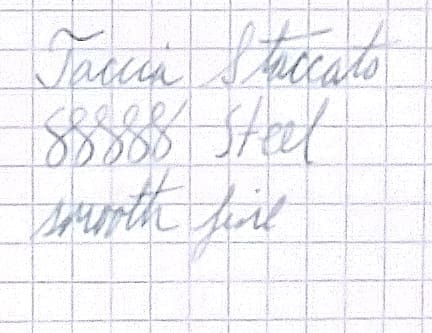 Taccia Staccato
888888 Steel
smooth fine